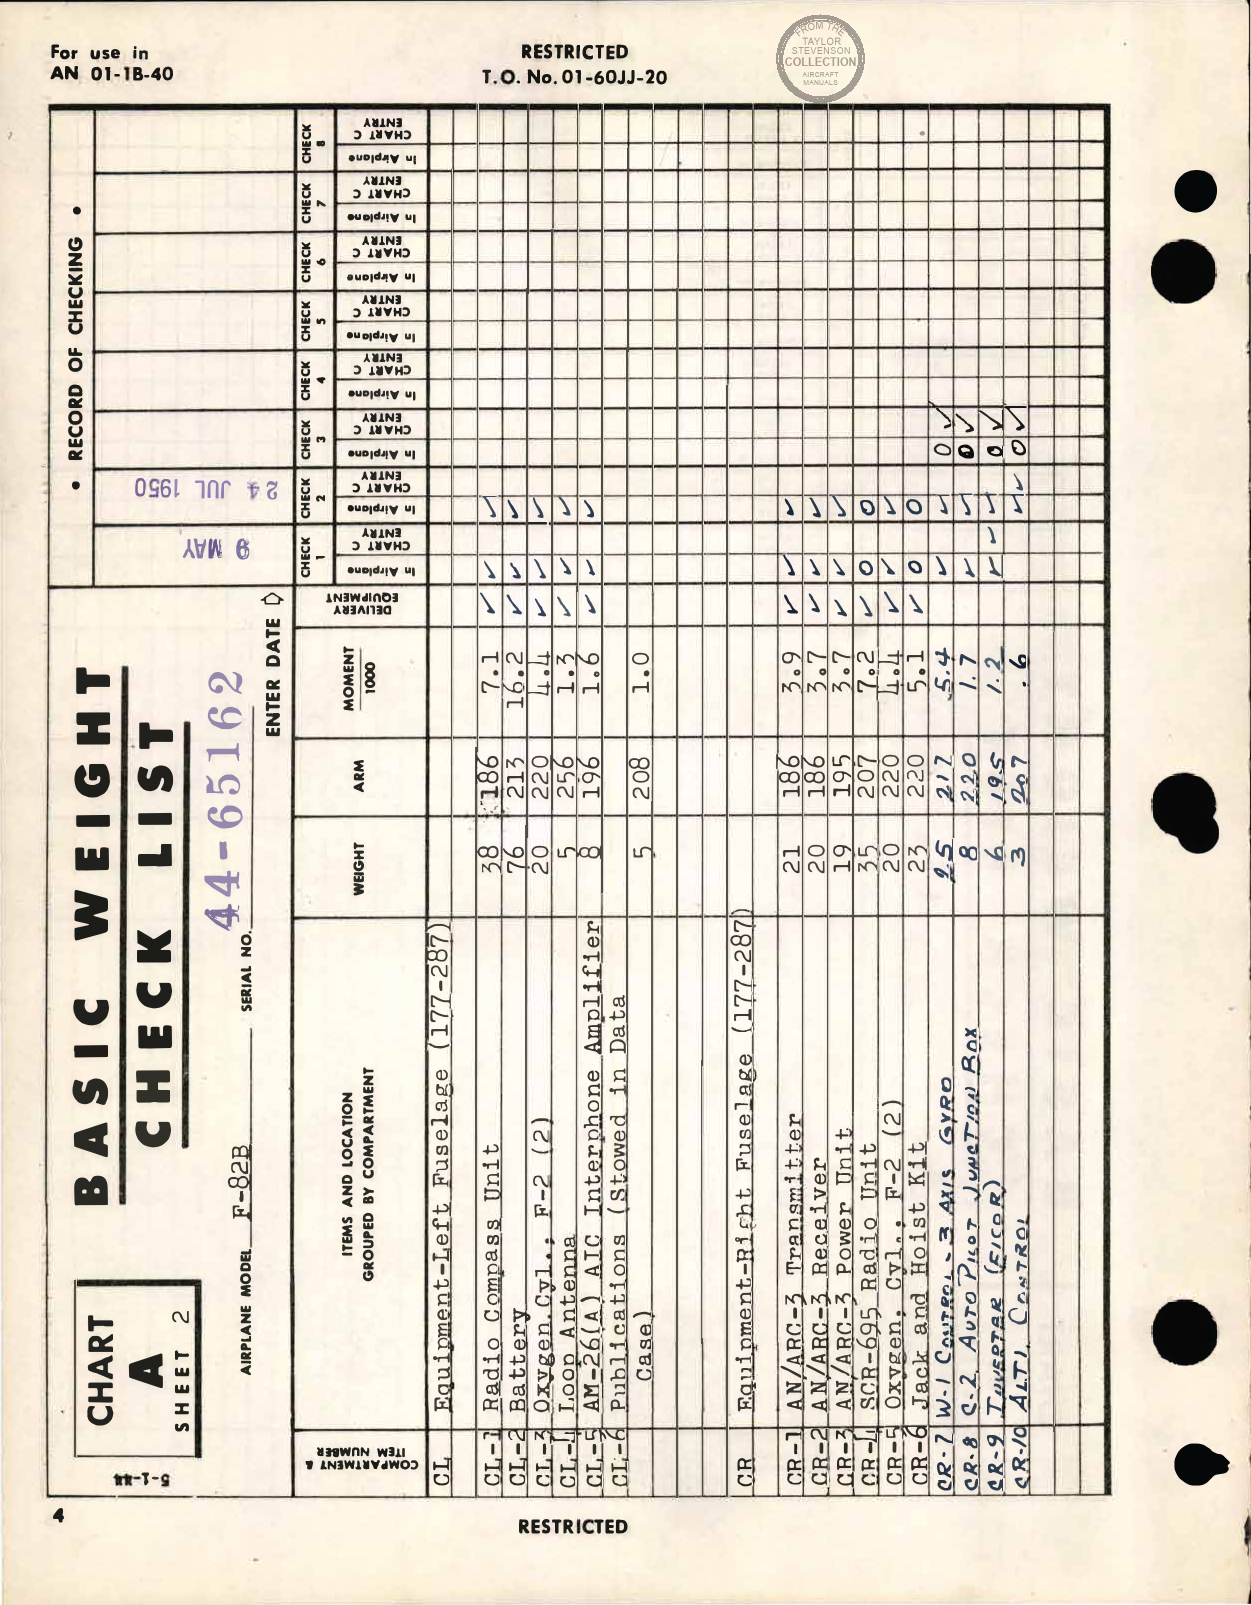 For use in
AN 01-1B-40
RESTRICTED
T.O. No. 01-60JJ-20
FROM THE
TAYLOR
STEVENSON
COLLECTION
AIRCRAFT
MANUALS
5-1-44
CHART
A
SHEET 2
BASIC WEIGHT
CHECK LIST
AIRPLANE MODEL F-82B SERIAL NO. 44-65162
ENTER DATE
• RECORD OF CHECKING •
9 MAY
24 JUL 1950
COMPARTMENT & ITEM NUMBER
ITEMS AND LOCATION
GROUPED BY COMPARTMENT
WEIGHT
ARM
MOMENT
1000
DELIVERY EQUIPMENT
CHECK 1 In Airplane CHART C ENTRY
CHECK 2 In Airplane CHART C ENTRY
CHECK 3 In Airplane CHART C ENTRY
CHECK 4 In Airplane CHART C ENTRY
CHECK 5 In Airplane CHART C ENTRY
CHECK 6 In Airplane CHART C ENTRY
CHECK 7 In Airplane CHART C ENTRY
CHECK 8 In Airplane CHART C ENTRY
CL Equipment-Left Fuselage (177-287)
CL-1 Radio Compass Unit 38 186 7.1 ✓ ✓ ✓
CL-2 Battery 76 213 16.2 ✓ ✓ ✓
CL-3 Oxygen Cyl., F-2 (2) 20 220 4.4 ✓ ✓ ✓
CL-4 Loop Antenna 5 256 1.3 ✓ ✓ ✓
CL-5 AM-26(A) AIC Interphone Amplifier 8 196 1.6 ✓ ✓ ✓
CL-6 Publications (Stowed in Data
Case) 5 208 1.0
CR Equipment-Right Fuselage (177-287)
CR-1 AN/ARC-3 Transmitter 21 186 3.9 ✓ ✓ ✓
CR-2 AN/ARC-3 Receiver 20 186 3.7 ✓ ✓ ✓
CR-3 AN/ARC-3 Power Unit 19 195 3.7 ✓ ✓ ✓
CR-4 SCR-695 Radio Unit 35 207 7.2 ✓ 0 0
CR-5 Oxygen, Cyl., F-2 (2) 20 220 4.4 ✓ ✓ ✓
CR-6 Jack and Hoist Kit 23 220 5.1 ✓ 0 0
CR-7 W-1 CONTROL-3 AXIS GYRO 25 217 5.4 ✓ ✓ 0 ✓
CR-8 C-2 AUTO PILOT JUNCTION BOX 8 220 1.7 ✓ ✓ 0 ✓
CR-9 INVERTER (EICOR) 6 195 1.2 ✓ ✓ ✓ 0 ✓
CR-10 ALTI. CONTROL 3 207 .6 ✓ ✓ 0 ✓
4
RESTRICTED